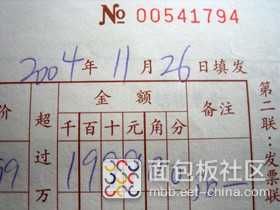 No 00541794
2004 年 11 月 26 日填发
价 超过万 金额 备注
千 百 十 元 角 分
199
第二联：发票联
面包板社区
mbb.eet-china.com